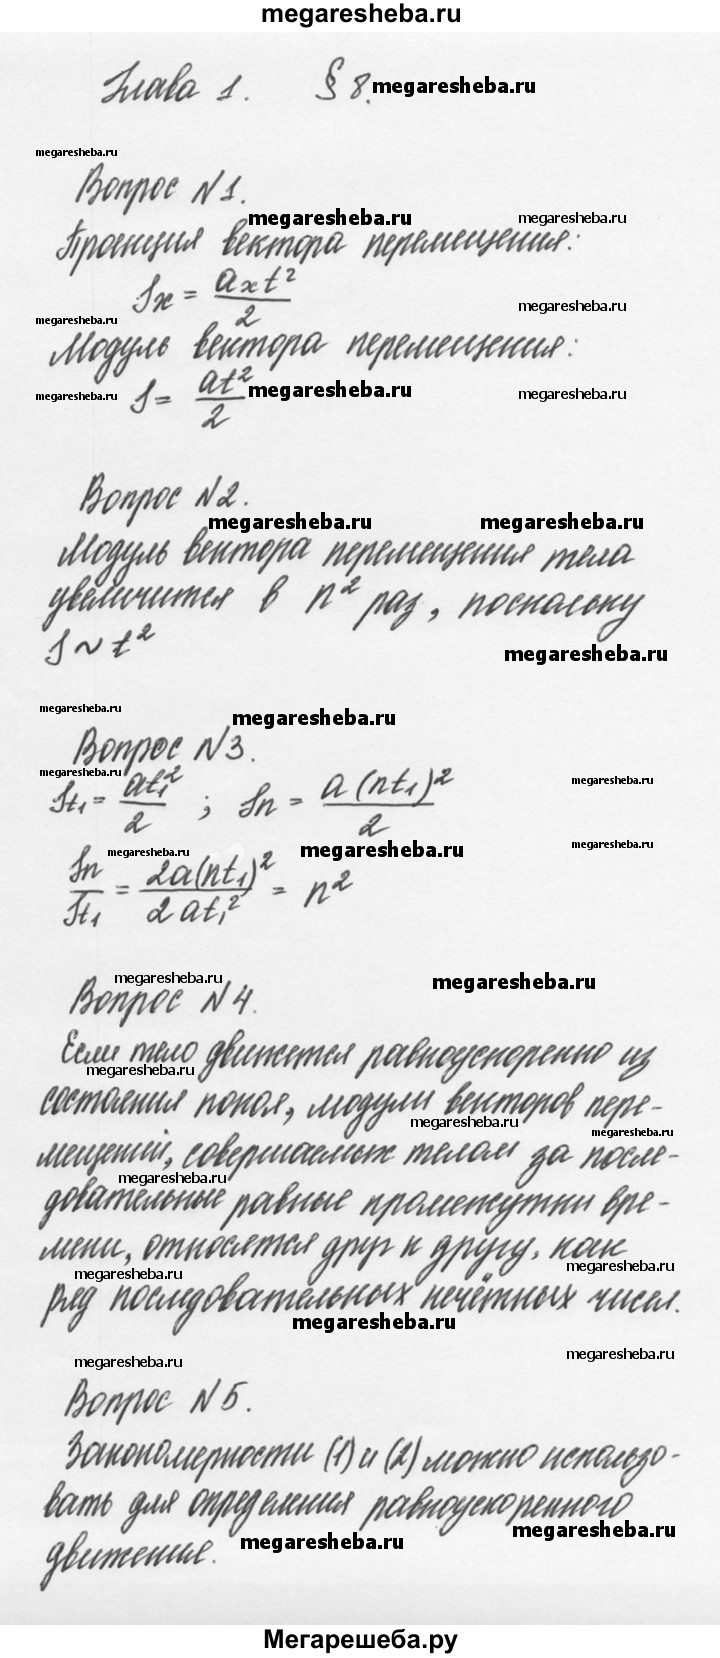 megaresheba.ru
Глава 1. § 8. megaresheba.ru
megaresheba.ru
Вопрос №1.
megaresheba.ru megaresheba.ru
Проекция вектора перемещения:
Sx = axt²/2
megaresheba.ru
megaresheba.ru
Модуль вектора перемещения:
S = at²/2
megaresheba.ru megaresheba.ru megaresheba.ru
Вопрос №2.
megaresheba.ru megaresheba.ru
Модуль вектора перемещения тела
увеличится в n² раз, поскольку
S ~ t²
megaresheba.ru
megaresheba.ru megaresheba.ru
Вопрос №3.
megaresheba.ru megaresheba.ru
St₁ = at₁²/2 ; Sn = a(nt₁)²/2
megaresheba.ru megaresheba.ru megaresheba.ru
Sn/St₁ = 2a(nt₁)²/2at₁² = n²
megaresheba.ru megaresheba.ru
Вопрос №4.
Если тело движется равноускоренно из
megaresheba.ru
состояния покоя, модули векторов пере-
megaresheba.ru megaresheba.ru
мещений, совершаемых телом за после-
megaresheba.ru
довательные равные промежутки вре-
мени, относятся друг к другу, как
megaresheba.ru megaresheba.ru
ряд последовательных нечётных чисел.
megaresheba.ru
megaresheba.ru megaresheba.ru
Вопрос №5.
Закономерности (1) и (2) можно использо-
вать для определения равноускоренного
megaresheba.ru megaresheba.ru
движения.
Мегарешеба.ру